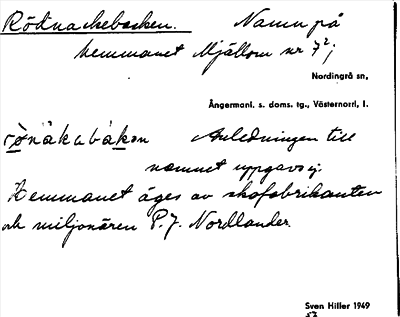 Rödnackebacken. Namn på
hemmanet Mjällom nr 7²;
Nordingrå sn,
Ångermanl. s. doms. tg., Västernorrl. l.
rönàkabákan Anledningen till
namnet uppgavs ej.
Hemmanet äges av skofabrikanten
och miljonären P.J. Nordlander.
Sven Hiller 1949